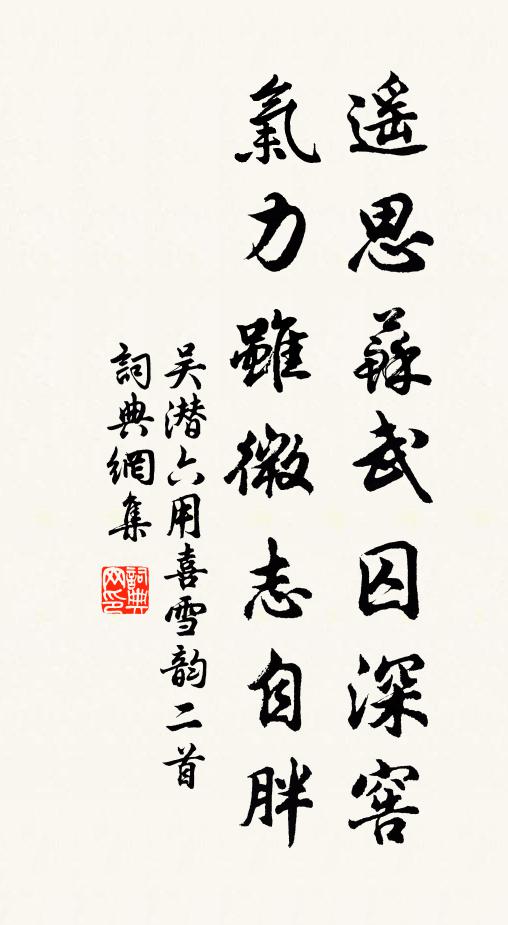 遥思蘇武囚深窖
氣力雖微志自胖
吴潜六用喜雪韵二首
詞典網集
詞典网印